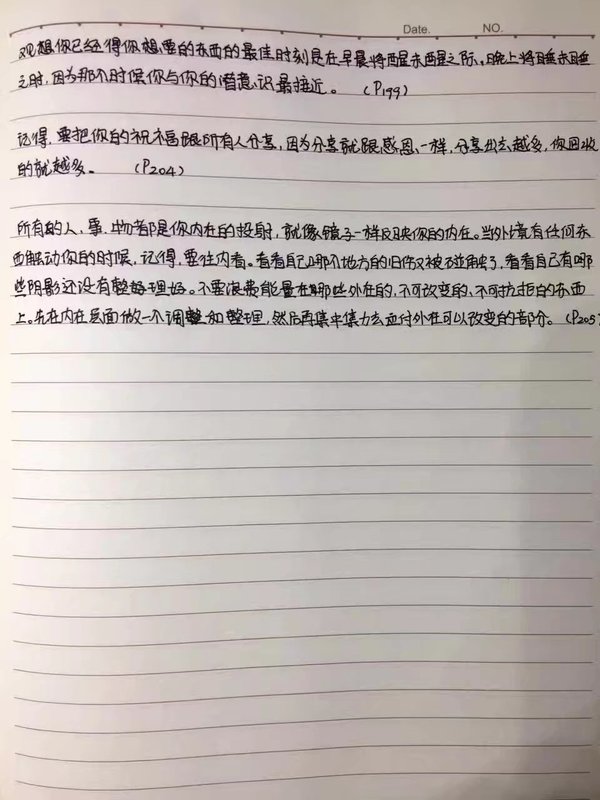 Date. NO.
观想你已经得你想要的东西的最佳时刻是在早晨将醒未醒之际,晚上将睡未睡
之时,因为那个时候你与你的潜意识最接近。 (P199)
记得,要把你的祝福跟所有人分享,因为分享就跟感恩一样,分享出去越多,你回收
的就越多。 (P204)
所有的人、事、物都是你内在的投射,就像镜子一样反映你的内在。当外境有任何东
西触动你的时候,记得,要往内看。看看自己哪个地方的旧伤又被碰触了,看看自己有哪
些阴影还没有整理好。不要浪费能量在那些外在的、不可改变的、不可抗拒的东西
上。先在内在层面做一个调整和整理,然后再集中集力去应付外在可以改变的部分。(P205)